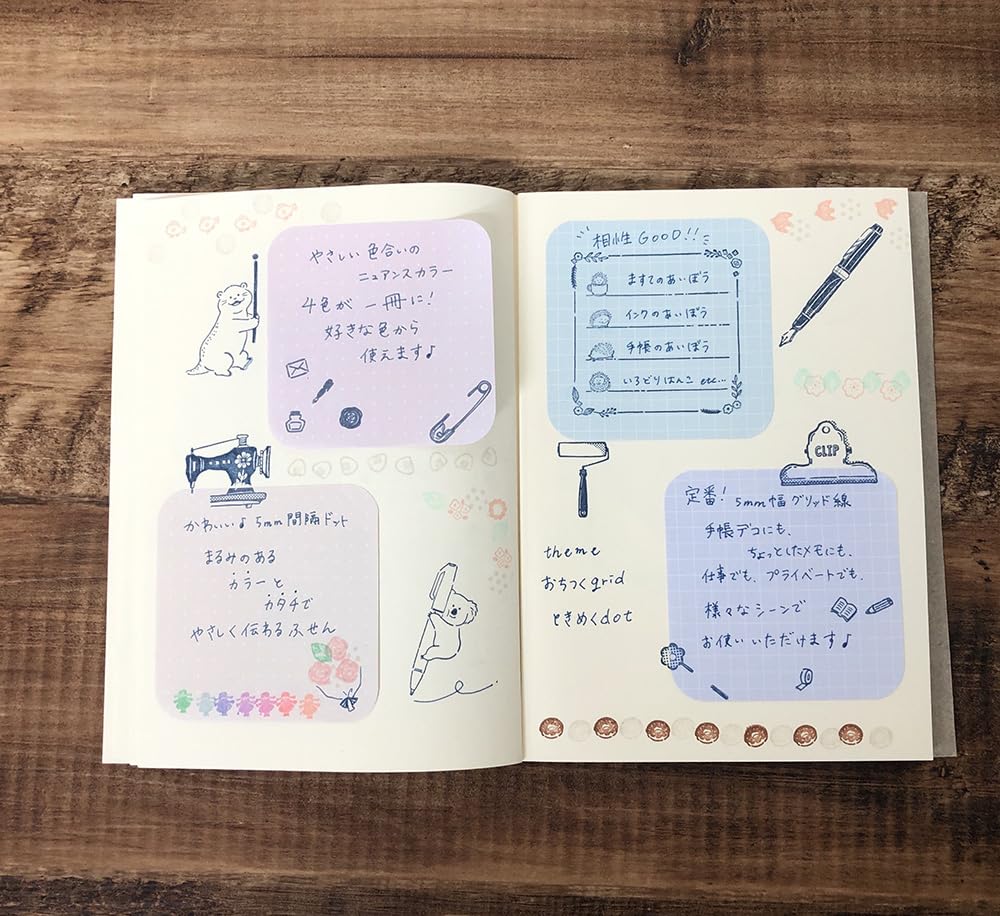 やさしい色合いの
ニュアンスカラー
4色が一冊に!
好きな色から
使えます♪
かわいい♪5mm間隔ドット
まるみのある
カラーと
カタチで
やさしく伝わるふせん
相性GOOD!!
ますてのあいぼう
インクのあいぼう
手帳のあいぼう
いろどりはんこ etc...
CLIP
定番!5mm幅グリッド線
手帳デコにも、
ちょっとしたメモにも、
仕事でも、プライベートでも、
様々なシーンで
お使いいただけます♪
theme
おちつくgrid
ときめくdot